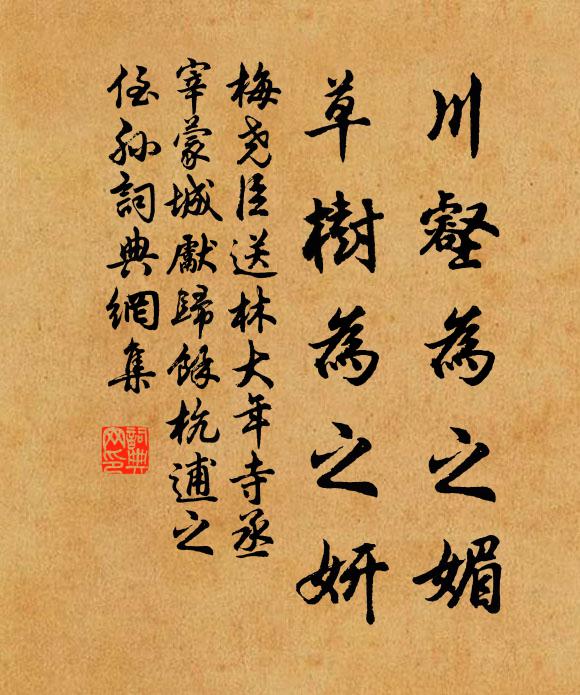 川壑為之媚
草樹為之妍
梅堯臣送林大年寺丞
宰蒙城獻歸餘杭逋之
侄孫詞典網集
詞典
网印